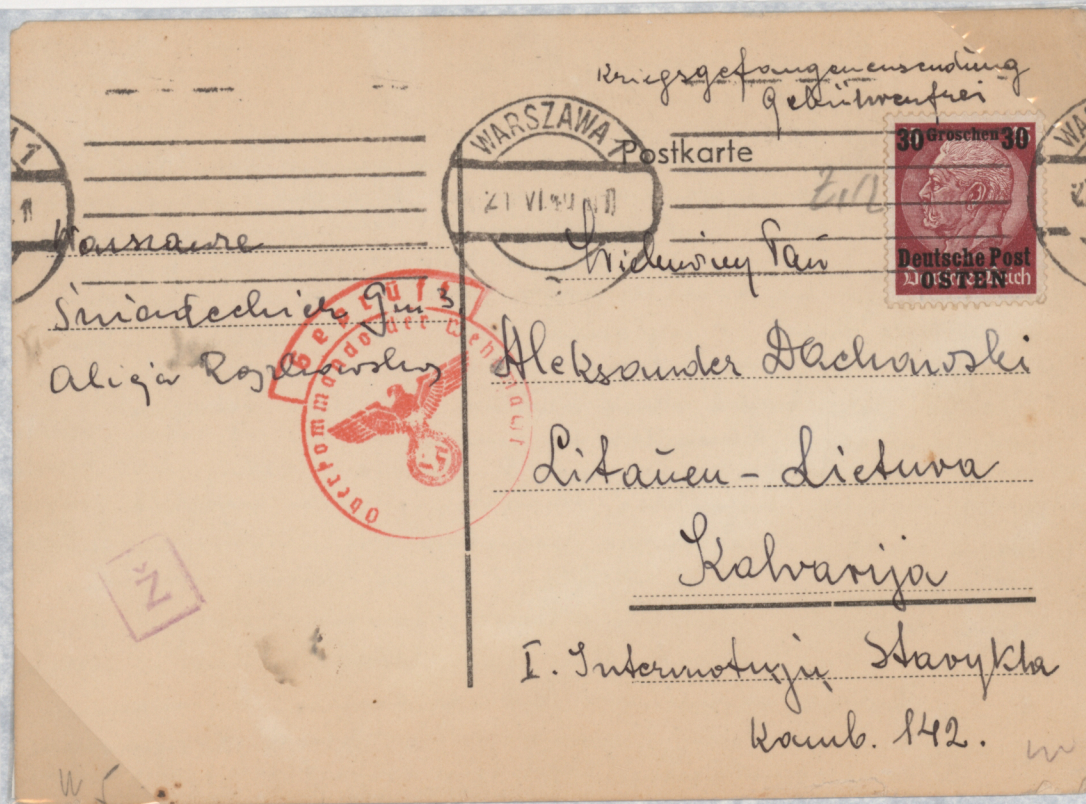 Kriegsgefangenensendung
Gebührenfrei
WARSZAWA 1
21 VI 40
Postkarte
30 Groschen 30
Deutsche Post
OSTEN
Deutsches Reich
Warszawa
Śniadeckich 9 m 3
Alicja
Geprüft
Oberkommando der Wehrmacht
Pan
Aleksander Dachowski
Litauen - Lietuva
Kalvarija
I. Internotųjų Stavykla
Kamb. 142.
Ž
W 5